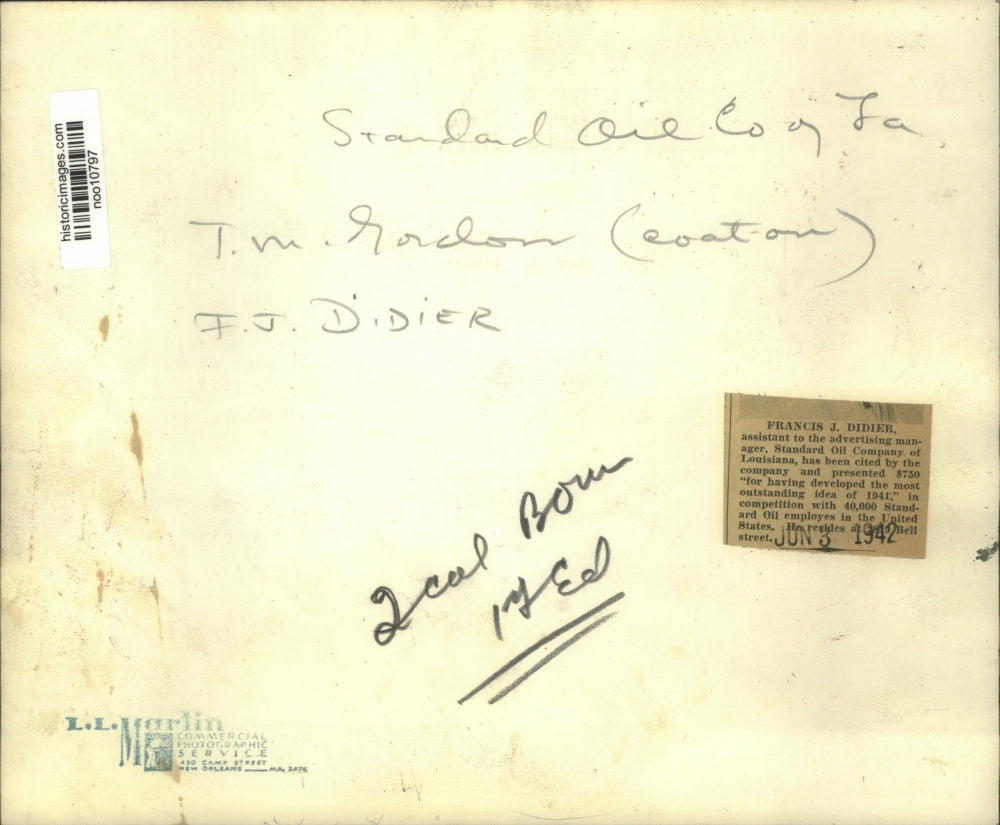 Standard Oil Co of La.
historicimages.com
noo10797
T.M. Gordon (coat on)
F.J. DIDIER
FRANCIS J. DIDIER,
assistant to the advertising man-
ager, Standard Oil Company of
Louisiana, has been cited by the
company and presented $750
"for having developed the most
outstanding idea of 1941," in
competition with 40,000 Stand-
ard Oil employes in the United
States. He resides at Bell
street.
JUN 3 1942
2 col
1st Ed
L.L. Martin
COMMERCIAL
PHOTOGRAPHIC
SERVICE
CAMP STREET
NEW ORLEANS